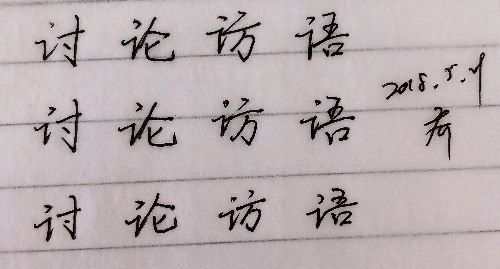 讨论访语
讨论访语
2018.5.
讨论访语